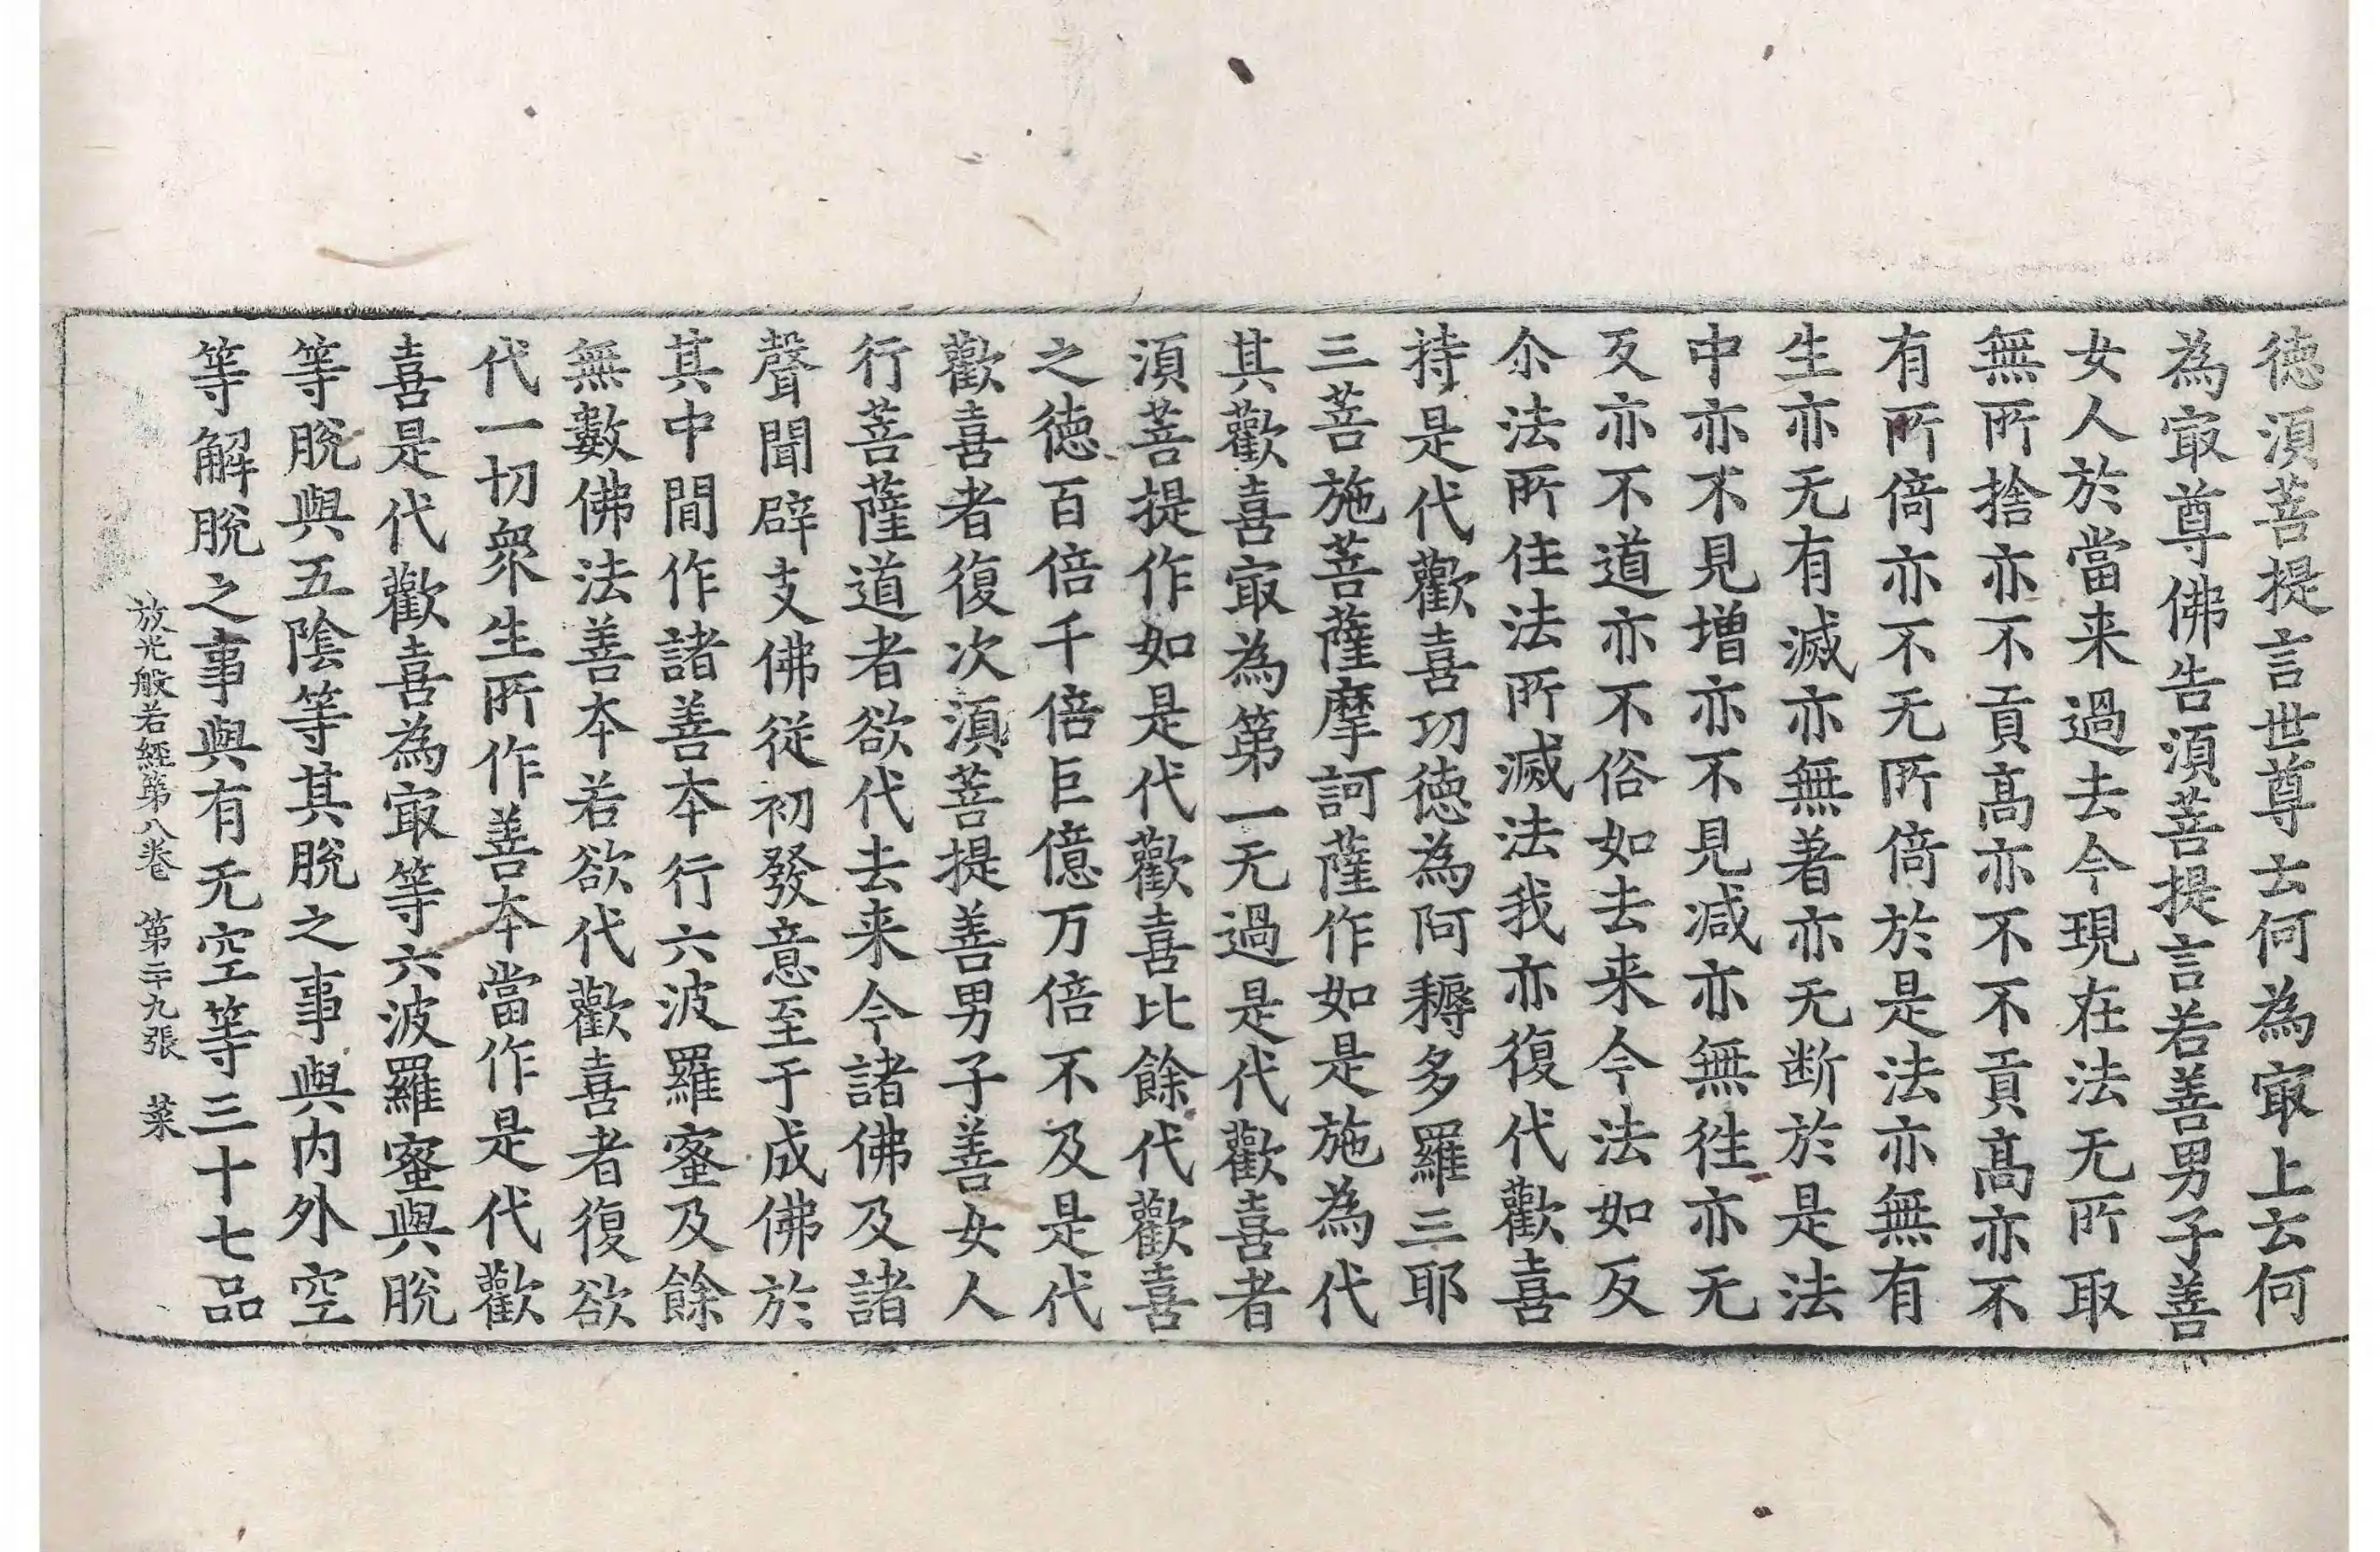 德湏菩提言世尊云何為㝡上云何
為㝡尊佛告湏菩提言若善男子善
女人於當来過去今現在法无所取
無所捨亦不貢髙亦不不貢髙亦不
有所倚亦不无所倚於是法亦無有
生亦无有滅亦無著亦无断於是法
中亦不見增亦不見减亦無徃亦无
反亦不道亦不俗如去来今法如反
尒法所住法所滅法我亦復代歡喜
持是代歡喜功德為阿耨多羅三耶
三菩施菩薩摩訶薩作如是施為代
其歡喜㝡為第一无過是代歡喜者
湏菩提作如是代歡喜比餘代歡喜
之德百倍千倍巨億万倍不及是代
歡喜者復次湏菩提善男子善女人
行菩薩道者欲代去来今諸佛及諸
聲聞辟支佛従初發意至于成佛於
其中間作諸善夲行六波羅蜜及餘
無數佛法善夲若欲代歡喜者復欲
代一切衆生所作善夲當作是代歡
喜是代歡喜為㝡等六波羅蜜與脫
等脫與五陰等其脫之事與内外空
等解脫之事與有无空等三十七品
放光般若經第八卷 第二十九張 菜